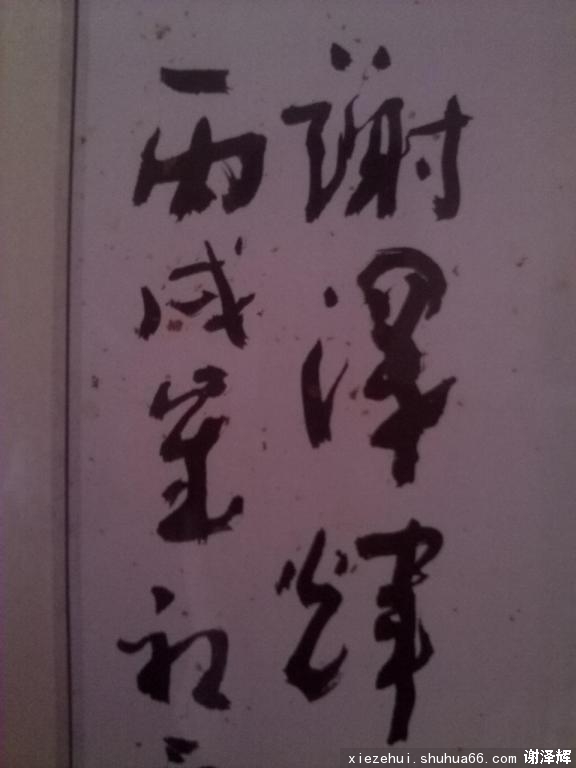 謝澤輝
丙戌歲初
xiezehui.shuhua66.com 谢泽辉